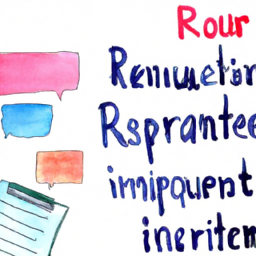 Rour
Remuetir
Rsprantee
imipquent
ineritem